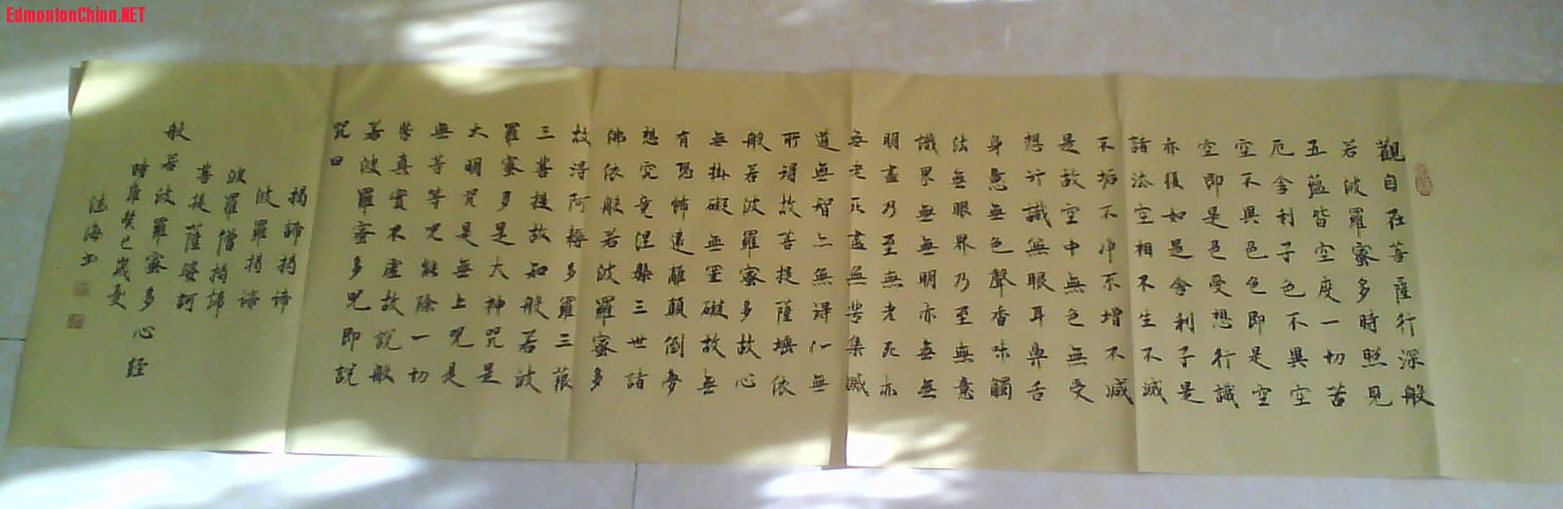 EdmontonChina.NET
觀自在菩薩行深般
若波羅蜜多時照見
五蘊皆空度一切苦
厄舍利子色不異空
空不異色色即是空
空即是色受想行識
亦復如是舍利子是
諸法空相不生不滅
不垢不淨不增不減
是故空中無色無受
想行識無眼耳鼻舌
身意無色聲香味觸
法無眼界乃至無意
識界無無明亦無無
明盡乃至無老死亦
無老死盡無苦集滅
道無智亦無得以無
所得故菩提薩埵依
般若波羅蜜多故心
無掛礙無罣礙故無
有恐怖遠離顛倒夢
想究竟涅槃三世諸
佛依般若波羅蜜多
故得阿耨多羅三藐
三菩提故知般若波
羅蜜多是大神咒是
大明咒是無上咒是
無等等咒能除一切
苦真實不虛故說般
若波羅蜜多咒即說
咒曰
揭諦揭諦
波羅揭諦
波羅僧揭諦
菩提薩婆訶
般若波羅蜜多心經
時維癸巳歲夏
海书